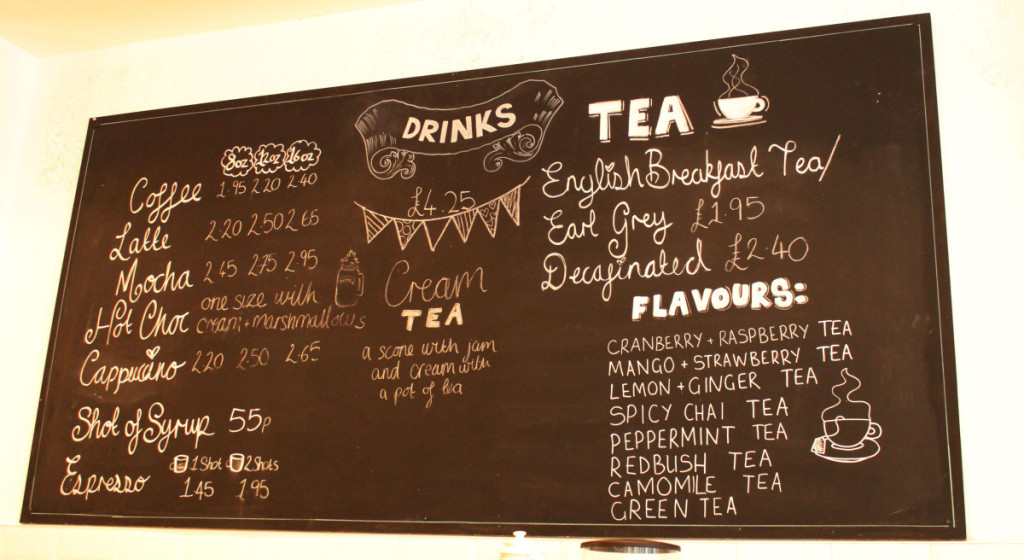 DRINKS
8oz 12oz 16oz
Coffee 1.95 2.20 2.40
Latte 2.20 2.50 2.65
Mocha 2.45 2.75 2.95
Hot Choc one size with
cream + marshmallows
Cappuccino 2.20 2.50 2.65
Shot of Syrup 55p
1 Shot 2 Shots
Espresso 1.45 1.95
£4.25
Cream
TEA
a scone with jam
and cream with
a pot of tea
TEA
English Breakfast Tea/
Earl Grey £1.95
Decafinated £2.40
FLAVOURS:
CRANBERRY + RASPBERRY TEA
MANGO + STRAWBERRY TEA
LEMON + GINGER TEA
SPICY CHAI TEA
PEPPERMINT TEA
REDBUSH TEA
CAMOMILE TEA
GREEN TEA